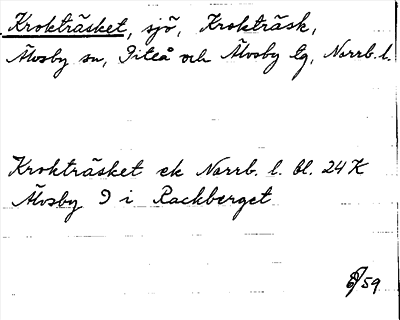 Krokträsket, sjö, Krokträsk,
Älvsby sn, Piteå och Älvsby tg, Norrb. l.
Krokträsket ek Norrb. l. bl. 24 K
Älvsby 9 i Rackberget
/59